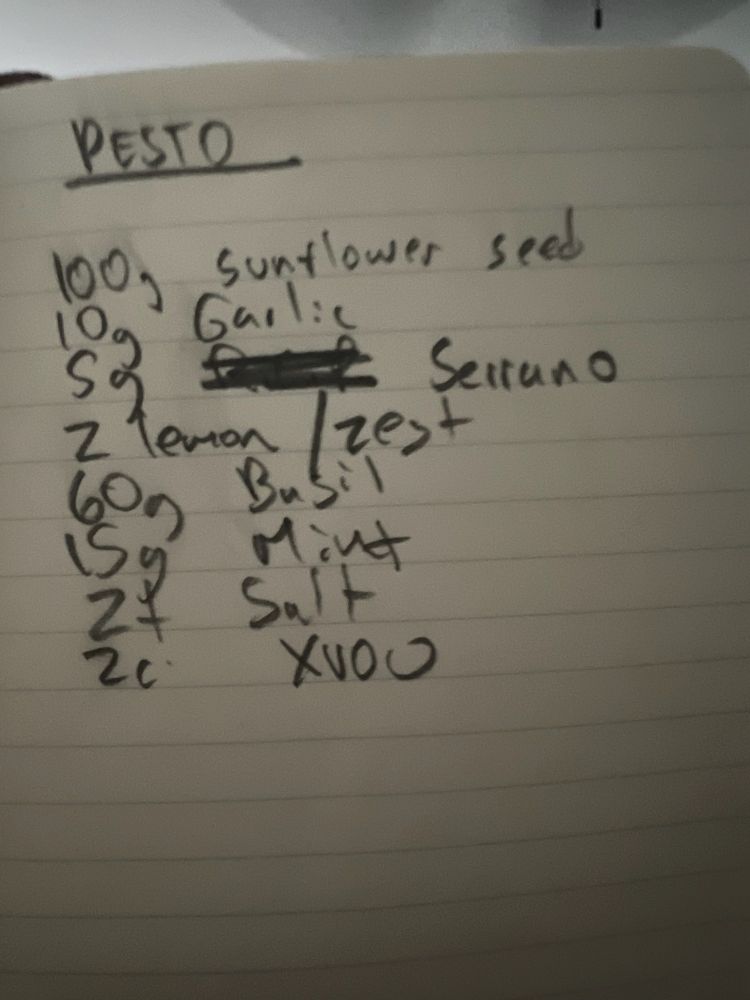 PESTO
100g sunflower seed
10g Garlic
5g Serrano
2 lemon / zest
60g Basil
15g Mint
2t Salt
2c. XVOO